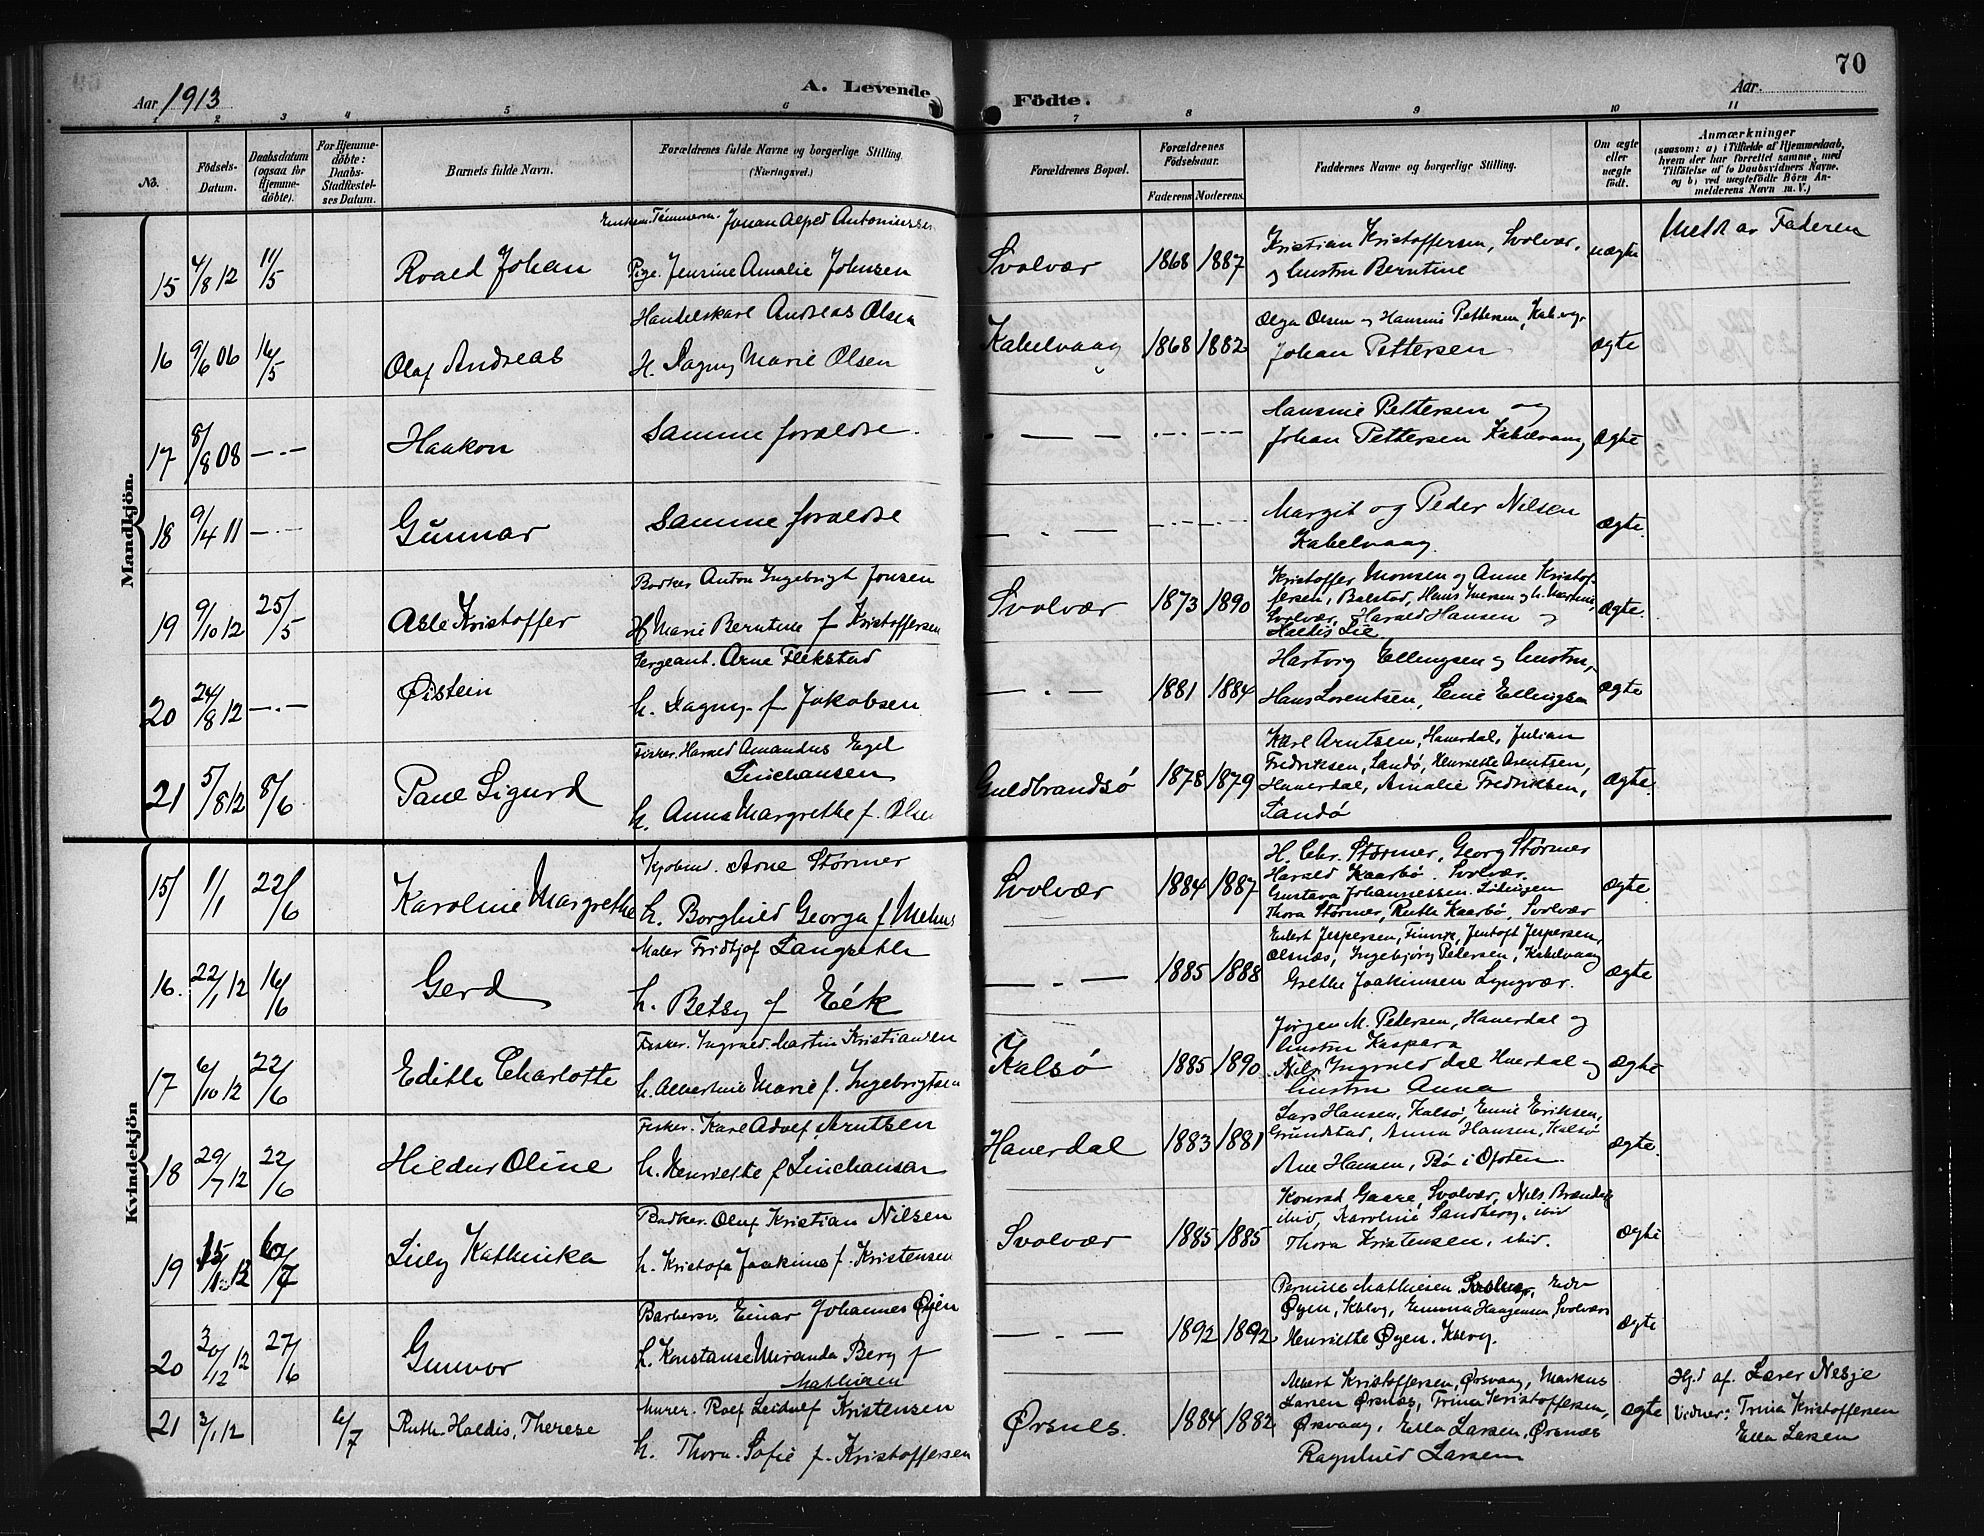 70
Aar 1913
A. Levende
Födte.
Aar
1 2 3 4 5 6 7 8 9 10 11
No.
Födsels-Datum.
Daabsdatum (ogsaa for Hjemme-døbte).
For Hjemme-døbte: Daabs-Stadfæstel-ses Datum.
Barnets fulde Navn.
Forældrenes fulde Navne og borgerlige Stilling. (Næringsvei.)
Forældrenes Bopæl.
Forældrenes Födselsaar.
Faderens Moderens.
Faddernes Navne og borgerlige Stilling.
Om ægte eller uægte födt.
Anmærkninger
(saasom: a) i Tilfælde af Hjemmedaab, hvem der har forrettet samme, med Tilføielse af to Daabsvidners Navne, og b) ved uægtefödte Börn An-melderens Navn m. V.)
Mandkjön.
15 4/8 12 11/5 Roald Johan
Johan Alfred Antoniussen
Pige Jensine Amalie Johnsen
Svolvær 1868 1887
Kristian Kristoffersen, Svolvær,
og hustru Berntine
uægte
Meldt av Faderen
16 9/6 06 16/5 Olaf Andreas
Handelskarl Andreas Olsen
H. Dagny Marie Olsen
Kabelvaag 1868 1882
Olga Olsen og Hansine Pettersen, Kabelvg.
Johan Pettersen
ægte
17 8/8 08 — . — Haakon
Samme forældre.
— . —
Hansine Pettersen og
Johan Pettersen Kabelvaag
ægte
18 9/4 11 — . — Gunnar
Samme forældre
— . —
Margit og Peder Nilsen
Kabelvaag.
ægte.
19 9/10 12 25/5 Asle Kristoffer
Bødker Anton Ingebrigt Jonsen
H. Marie Berntine f Kristoffersen
Svolvær 1873 1890
Kristoffer Monsen og Anne Kristof-
fersen, Balstad, Hans Iversen og h.
Svolvær, Harald Hansen og
Haldis Lie
ægte.
20 24/8 12 — . — Øistein
Sergeant. Arne Flekstad
h. Dagny f Jakobsen
— . — 1881 1884
Hartvig Ellingsen og hustru,
Hans Lorentsen, Lene Ellingsen
ægte
21 5/8 12 8/6 Paul Sigurd
Fisker. Harald Amandus Egel
Linchausen
h. Anna Margrethe f. Olsen
Guldbrandsø 1878 1879
Karl Arntsen, Haverdal, Julian
Fredriksen, Sandø, Henriette Arentsen,
Haverdal, Amalie Fredriksen,
Sandø
ægte.
Kvindekjön
15 1/1 22/6 Karoline Margrethe
Kjøbmd. Arne Størmer
h. Borghild Georga f Mehus
Svolvær 1884 1887
H. Chr. Størmer, Georg Størmer
Harald Kaarbø. Svolvær.
Gustava Johannessen. Lødingen
Thora Størmer, Ruth Kaarbø, Svolvær
ægte
16. 22/1 12 16/6 Gerd
Maler Fridtjof Langseth
h. Betsy f Eék
— . — 1885 1888
Edert Jespersen, Finvik, Jentoft Jespersen,
Olsnæs, Ingebjørg Petersen, Kabelvaag
Grethe Joakimsen Lyngvær.
ægte
17 6/10 12 22/6 Edith Charlotte
Fisker. Ingvald Martin Kristiansen
h. Albertine Marie f. Ingebrigtsen
Kalsø 1885 1890
Jørgen M. Pedersen, Haverdal og
hustru Kaspara
Nils Ingvald dal Haverdal og
hustru Anna
ægte
18 29/7 12 22/6 Hildur Oline
Fisker. Karl Adolf Arntsen
h. Henriette f Linchausen
Haverdal 1883 1881
Lars Hansen, Kalsø, Emil Eriksen,
Grundstad, Anna Hansen, Kalsø
Ane Hansen, Bø i Ofoten
ægte.
19 15/1 13 6/7 Lilly Kathinka
Bødker. Oluf Kristian Nilsen
h. Kristofa Joakima f. Kristensen
Svolvær 1885 1885
Konrad Gaare, Svolvær, Nils Brændal
ibid, Karoline Sandberg, ibid
Thora Kristensen, ibid.
ægte
20 30/12 12 27/6 Gunvor
Barbersv. Einar Johannes Øyen
h. Konstanse Miranda Berg f
Mathisen
— . — 1892 1892
Pernille Mathisen Svolvær, Endre
Øyen, Kbelvg, Emma Haagensen, Svolvær
Henriette Øyen. Kbelvg.
ægte
21 3/1 12 6/7 Ruth. Haldis, Therese
Murer. Rolf Leidulf Kristensen
h. Thora Sofie f. Kristoffersen
Ørsnes. 1884 1882
Albert Kristoffersen, Ørsvaag, Markus
Larsen Ørsnæs, Trina Kristoffersen,
Ørsvaag, Ella Larsen, Ørsnæs
Ragnhild Larsen
ægte
Hjd af. Lærer Nesje
Vidner: Trina Kristoffersen
Ella Larsen